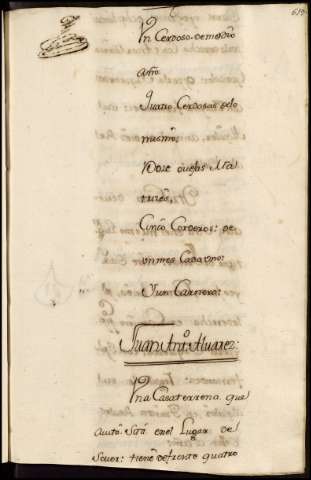 619
Un Cerdoso de medio
año:
Quatro Cerdosas de lo
mismo:
Doze ovejas Ma
tures,
Cinco Corderos: de
un mes Cada Uno:
Y un Carnero:
Juan Anto. Alvarez:
Una Casa terrena, que
Auita. Sita en el Lugar de
Sever: tiene de frente quatro